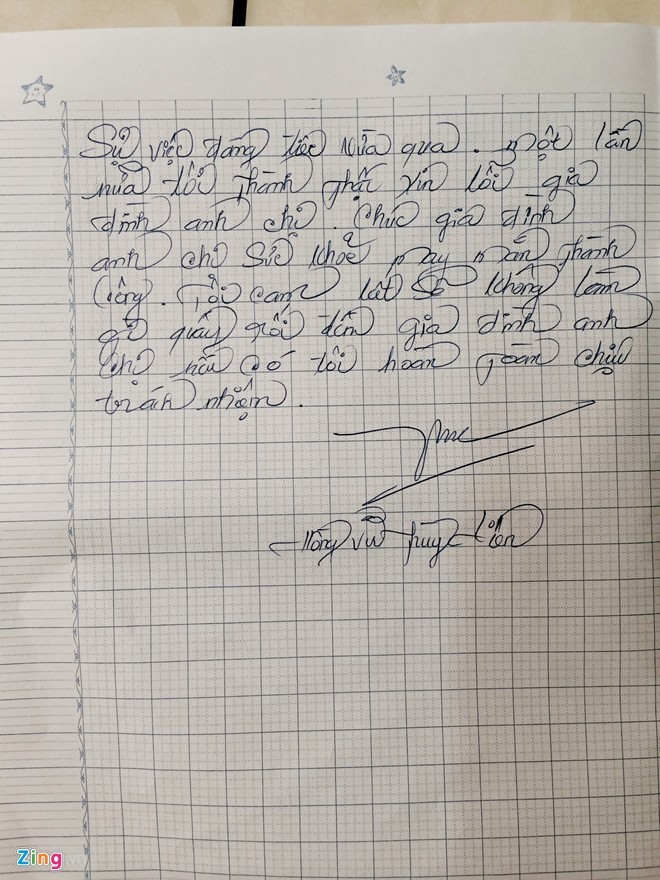 Sự việc đáng tiếc vừa qua. Một lần
nữa tôi thành thật xin lỗi gia
đình anh chị. Chúc gia đình
anh chị sức khoẻ may mắn thành
công. Tôi cam kết sẽ không làm
gì quấy rối đến gia đình anh
chị nếu có tôi hoàn toàn chịu
trách nhiệm.
Zing